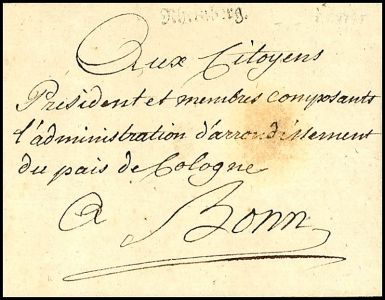 Rheinberg.
Aux Citoyens
President et membres composants
l'administration d'arrondissement
du pais de Cologne
a
Bonn